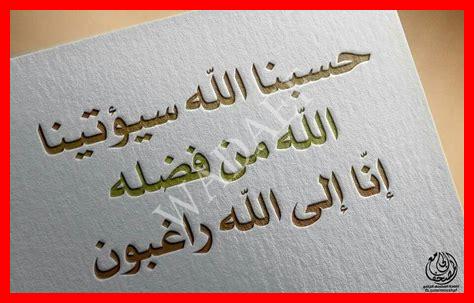 حسبنا الله سيؤتينا
الله من فضله
إنّا إلى الله راغبون
WADAE